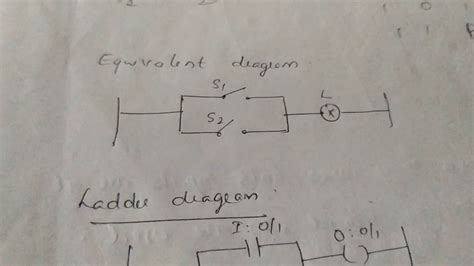 Equivalent diagram:
S1
L
S2
Ladder diagram:
I:0/1
O:0/1